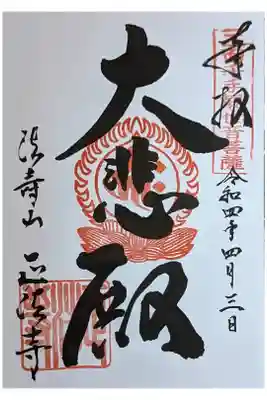 奉拝
令和四年四月三日
大悲殿
法寿山 正法寺